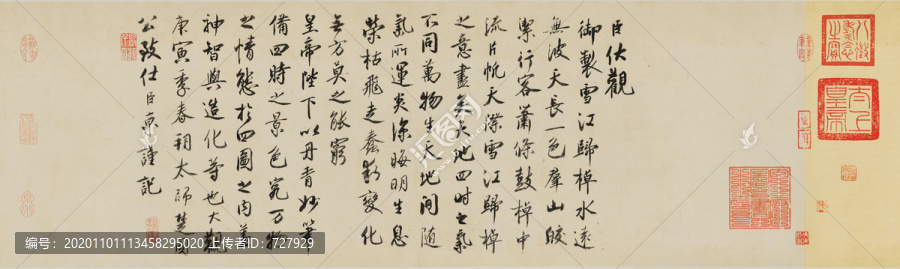 八徵耄念之寶
太上皇帝
臣伏觀
御製雪江歸棹水遠
無波天長一色羣山皎
潔行客蕭條鼓棹中
流片帆天際雪江歸棹
之意盡矣天地四時之氣
不同萬物生天地間隨
氣所運炎涼晦明生息
榮枯飛走蠢動變化
無方莫之能窮
皇帝陛下以丹青妙筆
備四時之景色究萬物
之情態於四圖之內蓋
神智與造化等也大觀
庚寅季春朔太師楚國
公致仕臣京謹記
编号:20201101113458295020 上传者ID号:1727929